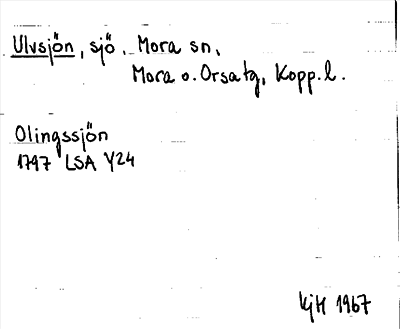 Ulvsjön, sjö. Mora sn,
Mora o. Orsa tg, Kopp. l.
Olingssjön
1797 LSA Y24
KjH 1967